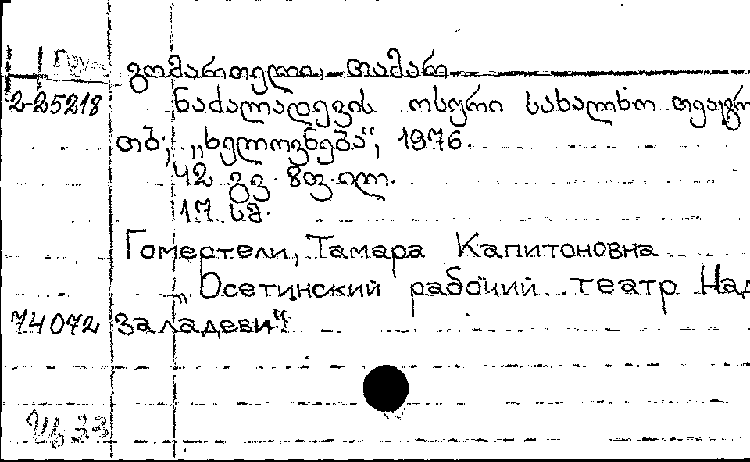 გომართელი, თამარ
2-25218 ნაძალადევის ოსური სახალხო თეატრ
თბ., „ხელოვნება“, 1976.
42 გვ. 8 ფ. ილ.
17 სმ.
Гомертели, Тамара Капитоновна
„Осетинский рабочий театр Над
74072 заладеви“.